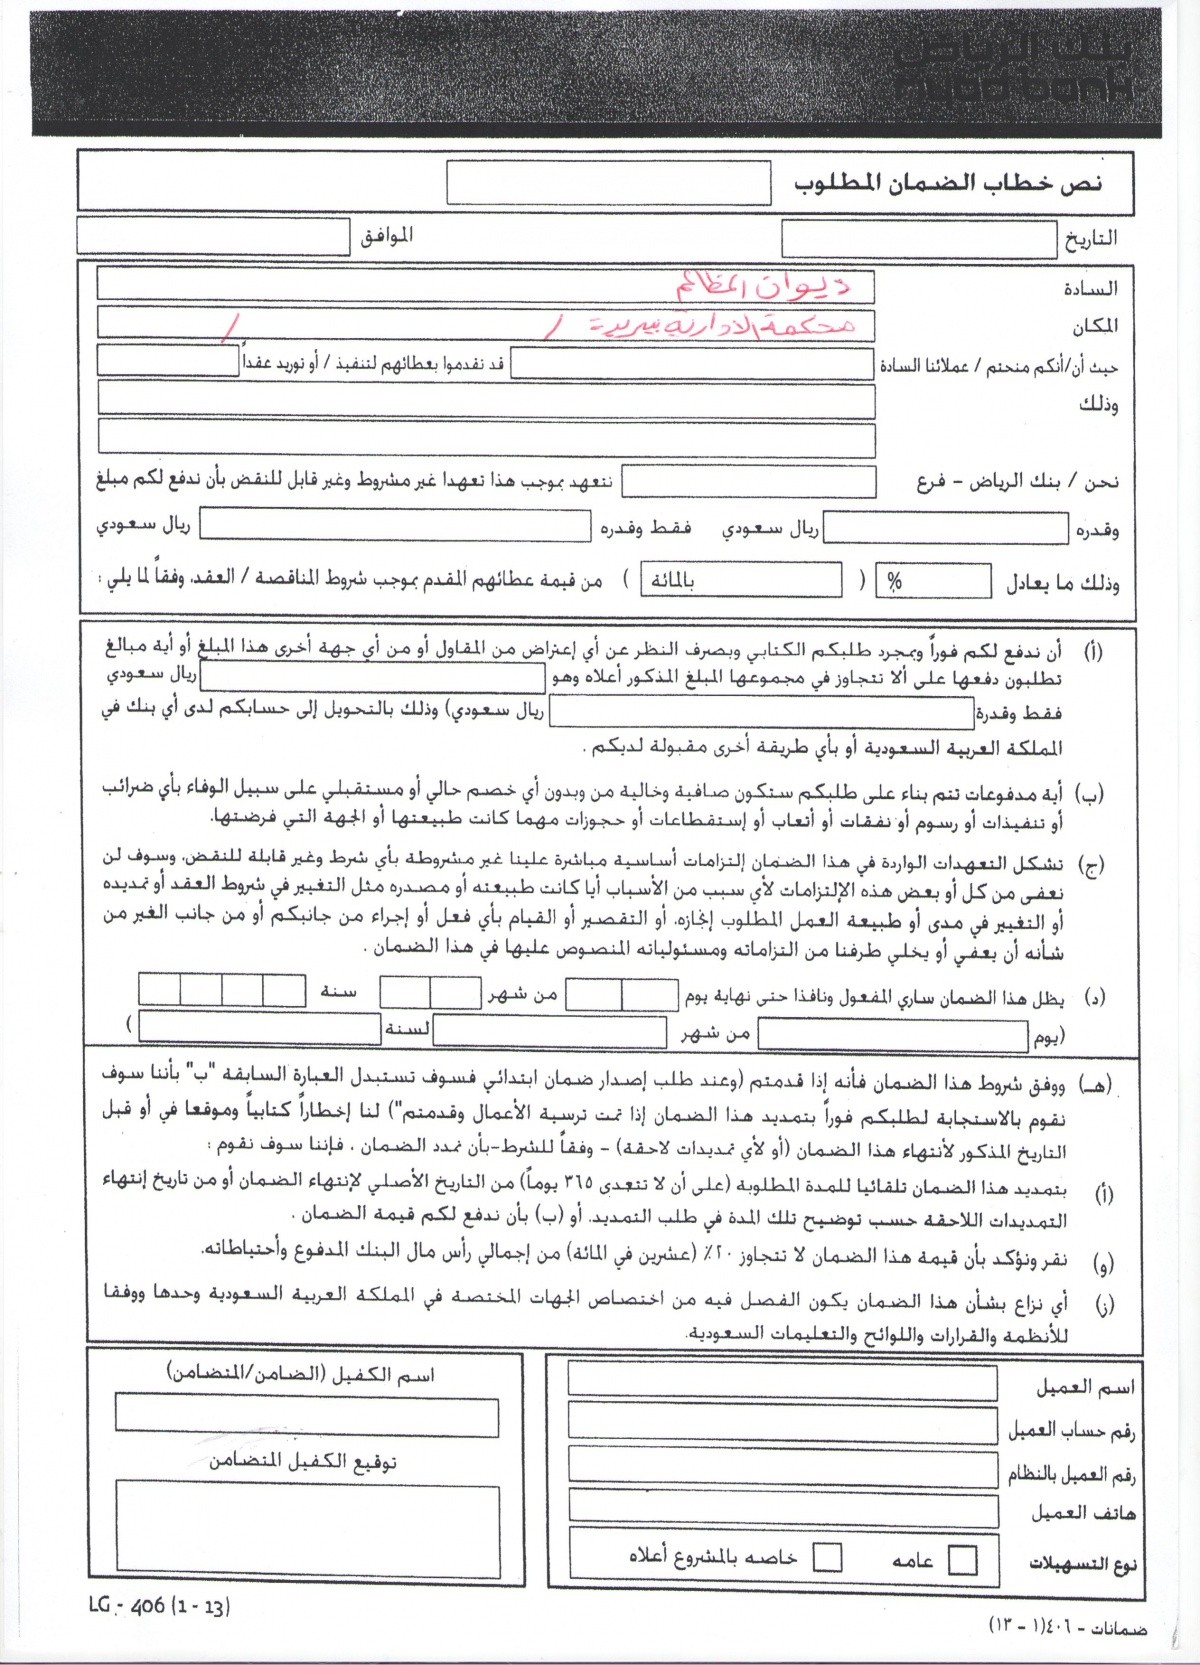 بنك الرياض
riyad bank
نص خطاب الضمان المطلوب
التاريخ الموافق
السادة ديوان المظالم
المكان محكمة الادارية ببريدة / /
حيث أن/أنكم منحتم / عملائنا السادة قد تقدموا بعطائهم لتنفيذ / أو توريد عقداً
وذلك
نحن / بنك الرياض - فرع نتعهد بموجب هذا تعهدا غير مشروط وغير قابل للنقض بأن ندفع لكم مبلغ
وقدره ريال سعودي فقط وقدره ريال سعودي
وذلك ما يعادل % ( بالمائة ) من قيمة عطائهم المقدم بموجب شروط المناقصة / العقد، وفقاً لما يلي :
(أ) أن ندفع لكم فوراً وبمجرد طلبكم الكتابي وبصرف النظر عن أي إعتراض من المقاول أو من أي جهة أخرى هذا المبلغ أو أية مبالغ
تطلبون دفعها على ألا تتجاوز في مجموعها المبلغ المذكور أعلاه وهو ريال سعودي
فقط وقدرة ريال سعودي) وذلك بالتحويل إلى حسابكم لدى أي بنك في
المملكة العربية السعودية أو بأي طريقة أخرى مقبولة لديكم .
(ب) أية مدفوعات تتم بناء على طلبكم ستكون صافية وخالية من وبدون أي خصم حالي أو مستقبلي على سبيل الوفاء بأي ضرائب
أو تنفيذات أو رسوم أو نفقات أو أتعاب أو إستقطاعات أو حجوزات مهما كانت طبيعتها أو الجهة التي فرضتها.
(ج) تشكل التعهدات الواردة في هذا الضمان إلتزامات أساسية مباشرة علينا غير مشروطة بأي شرط وغير قابلة للنقض، وسوف لن
نعفى من كل أو بعض هذه الإلتزامات لأي سبب من الأسباب أيا كانت طبيعته أو مصدره مثل التغيير في شروط العقد أو تمديده
أو التغيير في مدى أو طبيعة العمل المطلوب إنجازه، أو التقصير أو القيام بأي فعل أو إجراء من جانبكم أو من جانب الغير من
شأنه أن يعفي أو يخلي طرفنا من التزاماته ومسئولياته المنصوص عليها في هذا الضمان .
(د) يظل هذا الضمان ساري المفعول ونافذا حتى نهاية يوم من شهر سنة
(يوم من شهر لسنة )
(هـ) ووفق شروط هذا الضمان فأنه إذا قدمتم (وعند طلب إصدار ضمان ابتدائي فسوف تستبدل العبارة السابقة "ب" بأننا سوف
نقوم بالاستجابة لطلبكم فوراً بتمديد هذا الضمان إذا تمت ترسية الأعمال وقدمتم") لنا إخطاراً كتابياً وموقعا في أو قبل
التاريخ المذكور لأنتهاء هذا الضمان (أو لأي تمديدات لاحقة) - وفقاً للشرط-بأن نمدد الضمان ، فإننا سوف نقوم :
(أ) بتمديد هذا الضمان تلقائيا للمدة المطلوبة (على أن لا تتعدى ٣٦٥ يوماً) من التاريخ الأصلي لإنتهاء الضمان أو من تاريخ إنتهاء
التمديدات اللاحقة حسب توضيح تلك المدة في طلب التمديد، أو (ب) بأن ندفع لكم قيمة الضمان .
(و) نقر ونؤكد بأن قيمة هذا الضمان لا تتجاوز ٢٠٪ (عشرين في المائة) من إجمالي رأس مال البنك المدفوع وأحتياطاته.
(ز) أي نزاع بشأن هذا الضمان يكون الفصل فيه من اختصاص الجهات المختصة في المملكة العربية السعودية وحدها ووفقا
للأنظمة والقرارات واللوائح والتعليمات السعودية.
اسم العميل
رقم حساب العميل
رقم العميل بالنظام
هاتف العميل
نوع التسهيلات عامه خاصه بالمشروع أعلاه
اسم الكفيل (الضامن/المتضامن)
توقيع الكفيل المتضامن
ضمانات - ٤٠٦(١ - ١٣)
LG - 406 (1 - 13)